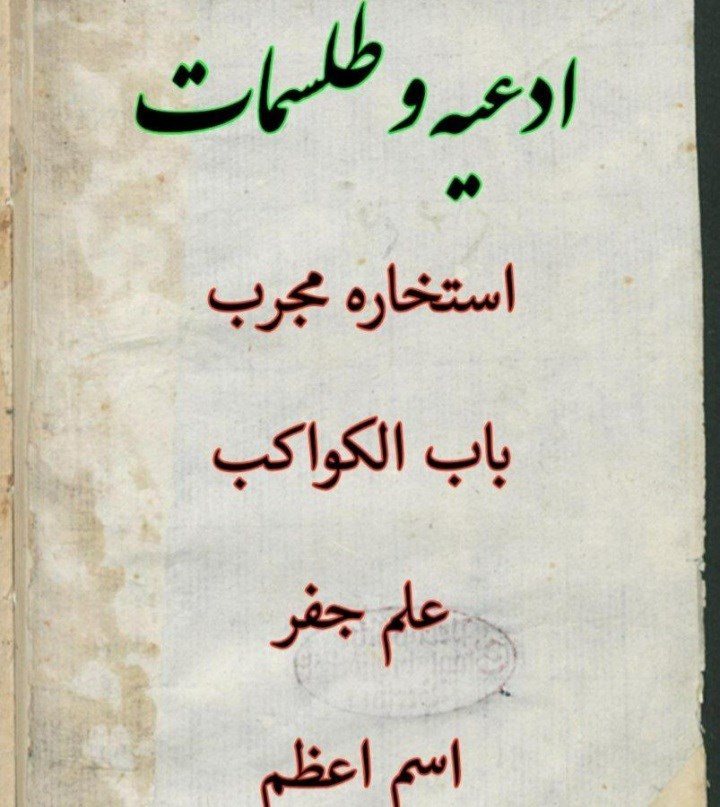 ادعیه و طلسمات
استخاره مجرب
باب الکواکب
علم جفر
اسم اعظم